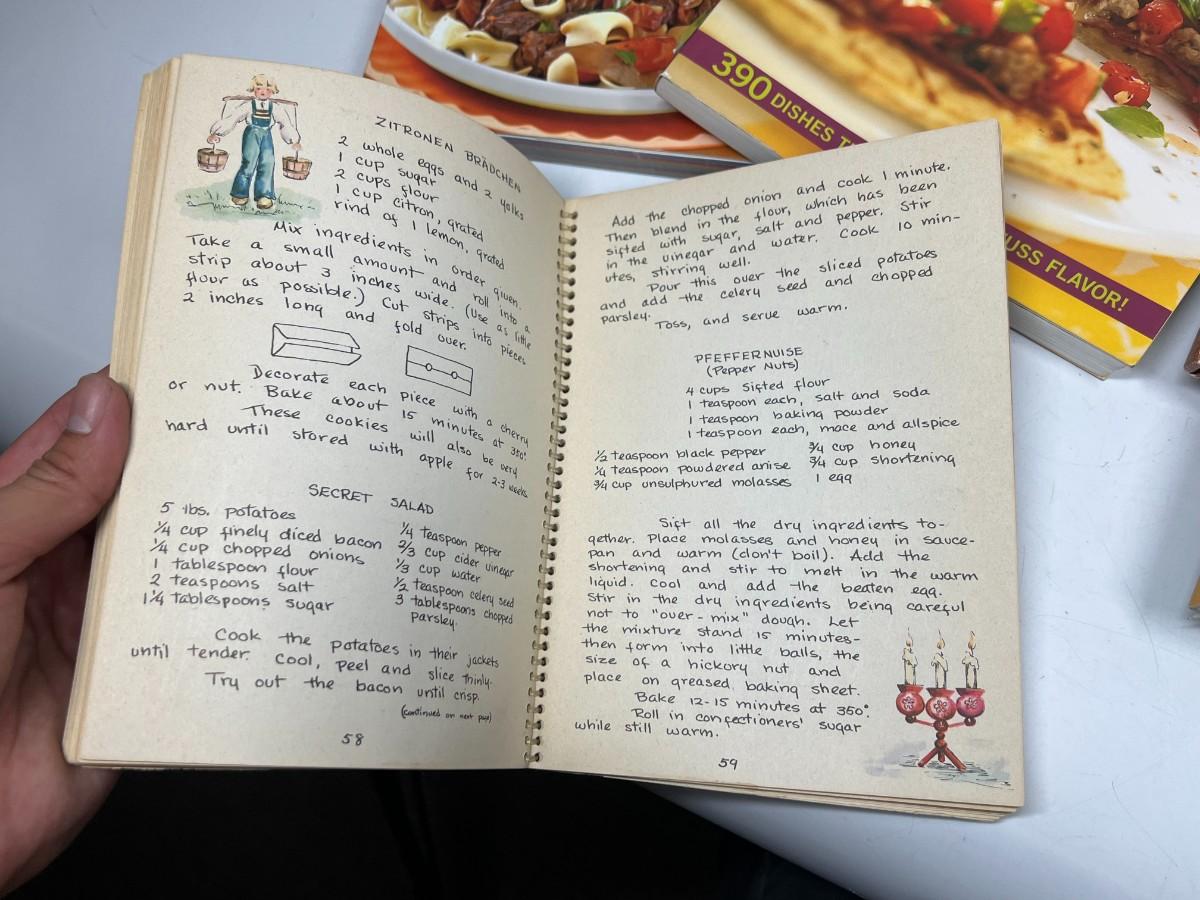 ZITRONEN BRÄDCHEN
2 whole eggs and 2 yolks
1 cup sugar
2 cups flour
1 cup citron, grated
rind of 1 lemon, grated
Mix ingredients in order given.
Take a small amount and roll into a
strip about 3 inches wide. (Use as little
flour as possible.) Cut strips into pieces
2 inches long and fold over.
Decorate each piece with a cherry
or nut. Bake about 15 minutes at 350°.
These cookies will also be very
hard until stored with apple for 2-3 weeks.
SECRET SALAD
5 lbs. potatoes
1/4 cup finely diced bacon
1/4 cup chopped onions
1 tablespoon flour
2 teaspoons salt
1 1/4 tablespoons sugar
1/4 teaspoon pepper
2/3 cup cider vinegar
1/3 cup water
1/2 teaspoon celery seed
3 tablespoons chopped
parsley.
Cook the potatoes in their jackets
until tender. Cool, peel and slice thinly.
Try out the bacon until crisp.
(continued on next page)
58
Add the chopped onion and cook 1 minute.
Then blend in the flour, which has been
sifted with sugar, salt and pepper. Stir
in the vinegar and water. Cook 10 min-
utes, stirring well.
Pour this over the sliced potatoes
and add the celery seed and chopped
parsley.
Toss, and serve warm.
PFEFFERNUISE
(Pepper Nuts)
4 cups sifted flour
1 teaspoon each, salt and soda
1 teaspoon baking powder
1 teaspoon each, mace and allspice
1/2 teaspoon black pepper
1/4 teaspoon powdered anise
3/4 cup unsulphured molasses
3/4 cup honey
3/4 cup shortening
1 egg
Sift all the dry ingredients to-
gether. Place molasses and honey in sauce-
pan and warm (don't boil). Add the
shortening and stir to melt in the warm
liquid. Cool and add the beaten egg.
Stir in the dry ingredients being careful
not to "over-mix" dough. Let
the mixture stand 15 minutes-
then form into little balls, the
size of a hickory nut and
place on greased baking sheet.
Bake 12-15 minutes at 350°.
Roll in confectioners' sugar
while still warm.
59
390 DISHES
FLAVOR!